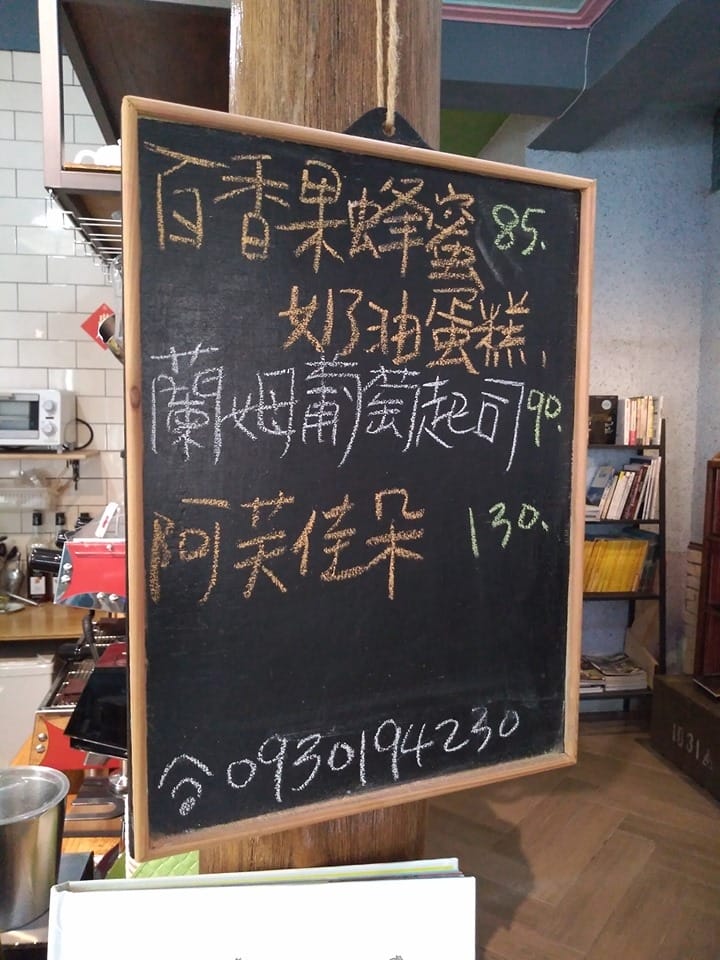 百香果蜂蜜 85.
奶油蛋糕.
蘭姆葡萄起司 90.
阿芙佳朵 130.
0930194230
1031